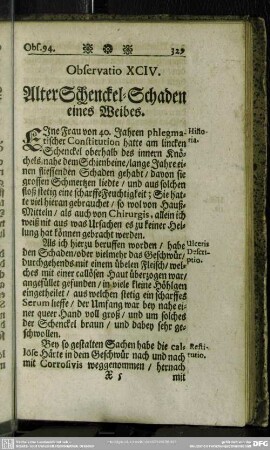 Obs. 94. 329
Observatio XCIV.
Alter Schenckel-Schaden
eines Weibes.
EJne Frau von 40. Jahren phlegma- Histo-
tischer Constitution hatte am lincken ria.
Schenckel oberhalb des innern Knö-
chels, nahe dem Schienbeine / lange Jahre ei-
nen fliessenden Schaden gehabt / davon sie
grossen Schmertzen liedte / und aus solchen
floß stetig eine scharffe Feuchtigkeit; Sie hat-
te viel hieran gebrauchet / so wol von Hauß-
Mitteln / als auch von Chirurgis, allein ich
weiß nit aus was Ursachen es zu keiner Hei-
lung hat können gebracht werden.
Als ich hierzu beruffen worden / habe Ulceris
den Schaden / oder vielmehr das Geschwür / Descri-
durchgehends mit einem übelen Fleisch / wel- ptio.
ches mit einer callösen Haut überzogen war /
angefüllet gefunden / in viele kleine Höhlgen
eingetheilet / aus welchen stetig ein scharffes
Serum lieffe / der Umfang war bey nahe ei-
ner queer Hand voll groß / und um solches
der Schenckel braun / und dabey sehr ge-
schwollen.
Bey so gestalten Sachen habe die cal- Resti-
löse Härte in dem Geschwür nach und nach tutio.
mit Corrosivis weggenommen / hernach
X 5 mit